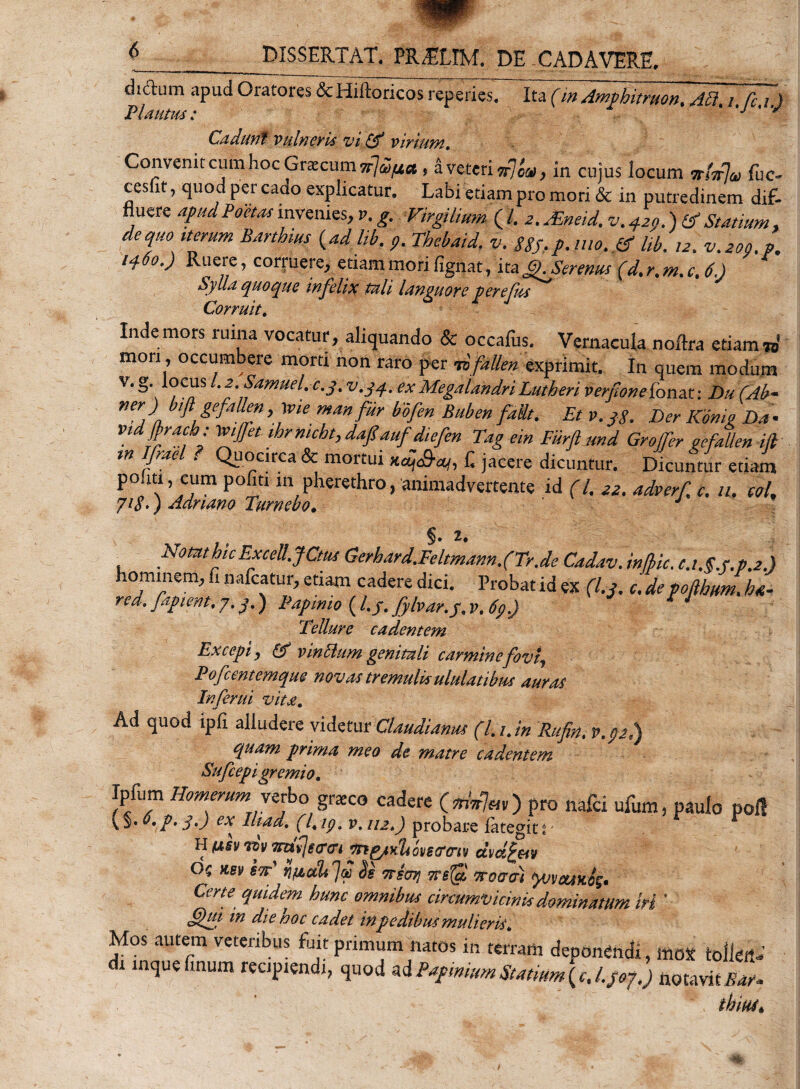 6 DISSERTAT. PRÆLIM. DE CADAVERE.
dictum apud Oratores & Historicos reperies. Ita (in Amphitruon. Act. 1. sc. 1.)
Plautus:
Cadunt vulneris vi & virium.
Convenit cum hoc Græcum πλῶμα, à veteri πλόω, in cujus locum πίπλω suc-
cessit, quod per cado explicatur. Labi etiam pro mori & in putredinem dif-
fluere apud Poëtas invenies, v. g. Virgilium (l. 2. Æneid. v. 429.) & Statium,
de quo iterum Barthius (ad lib. 9. Thebaid. v. 885. p. 1110. & lib. 12. v. 209. p.
1460.) Ruere, corruere, etiam mori signat, ita Q. Serenus (d. r. m. c. 6.)
Sylla quoque infelix tali languore peresus
Corruit.
Inde mors ruina vocatur, aliquando & occasus. Vernacula nostra etiam τὸ
mori, occumbere morti non raro per τὸ fallen exprimit. In quem modum
v. g. locus l. 2. Samuel. c. 3. v. 34. ex Megalandri Lutheri versione sonat: Du (Ab-
ner) bist gefallen, wie man für bösen Buben fällt. Et v. 38. Der König Da-
vid sprach: wisset ihr nicht, daß auf diesen Tag ein Fürst und Grosser gefallen ist
in Israël? Quocirca & mortui κεῖσθαι, s. jacere dicuntur. Dicuntur etiam
positi, cum positi in pherethro, animadvertente id (l. 22. advers. c. 11. col.
718.) Adriano Turnebo.
§. 2.
Notat hic Excell. JCtus Gerhard. Feltmann. (Tr. de Cadav. inspic. c. 1. §. 5. p. 2.)
hominem, si nascatur, etiam cadere dici. Probat id ex (l. 3. c. de posthum. hæ-
red. sapient. 7. 3.) Papinio (l. 5. sylvar. 5. v. 69.)
Tellure cadentem
Excepi, & vinctum genitali carmine fovi,
Poscentemque novas tremulis ululatibus auras
Inserui vitæ.
Ad quod ipsi alludere videtur Claudianus (l. 1. in Rufin. v. 92.)
quam prima meo de matre cadentem
Suscepi gremio.
Ipsum Homerum verbo græco cadere (πίπλειν) pro nasci usum, paulo post
(§. 6. p. 3.) ex Iliad. (l. 19. v. 112.) probare sategit:
Η μὲν τὸν πάντεσσι περικτιόνεσσιν ἀνάξειν
Ὅς κεν ἐπ' ἤματι τῷ δὲ πέσῃ περὶ ποσσὶ γυναικός.
Certe quidem hunc omnibus circumvicinis dominatum iri
Qui in die hoc cadet in pedibus mulieris.
Mos autem veteribus fuit primum natos in terram deponendi, mox tollen-
di inque sinum recipiendi, quod ad Papinium Statium (c. l. 507.) notavit Bar-
thius.